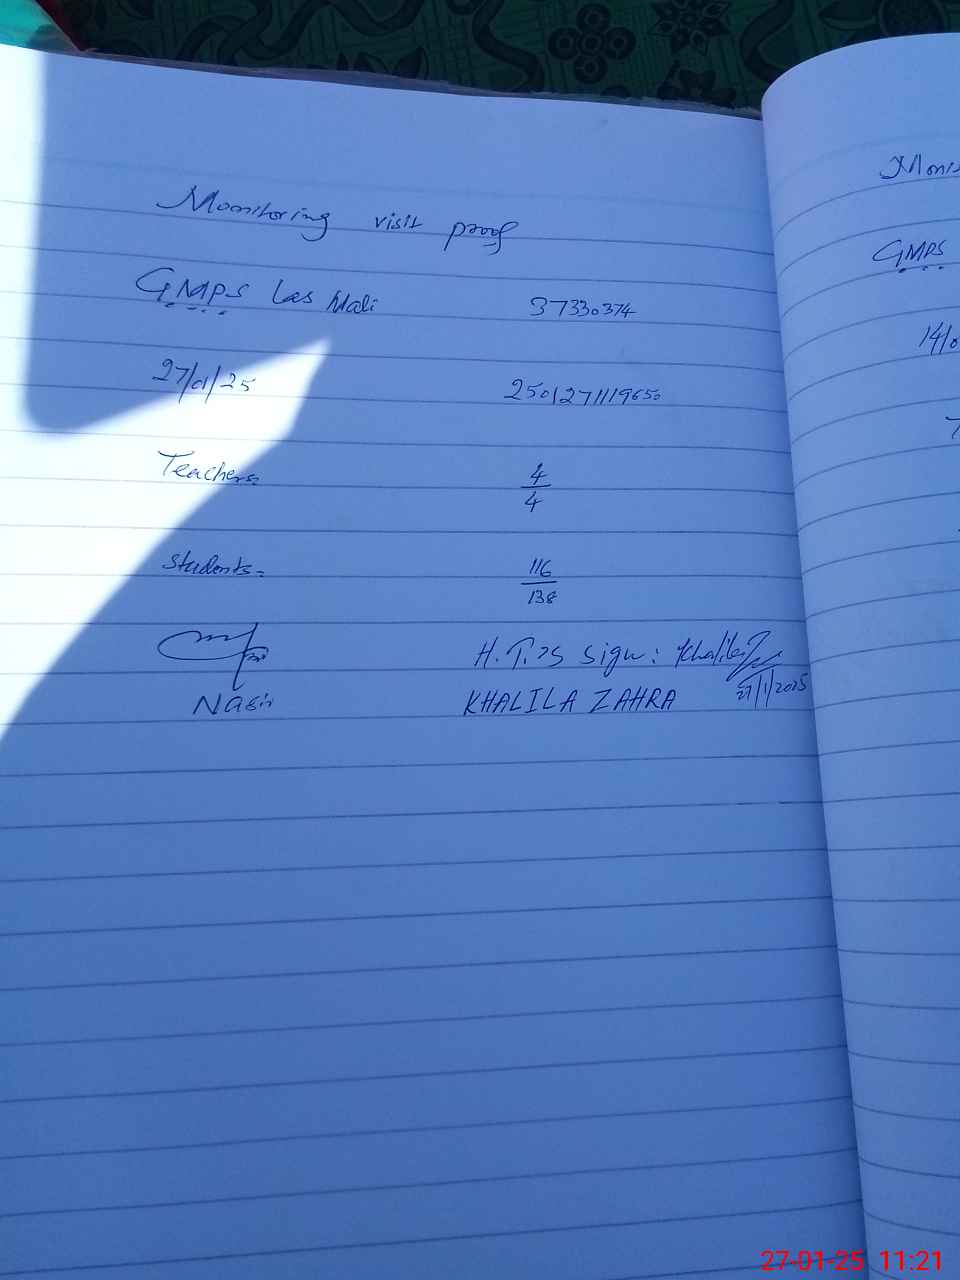 Monitoring visit proof
G.M.P.S Las Mali 37330374
27/01/25 2501271119650
Teachers= 4/4
Students= 116/138
H.T,s sign: Khalila
27/1/2025
Nasir KHALILA ZAHRA
GMPS
27-01-25 11:21